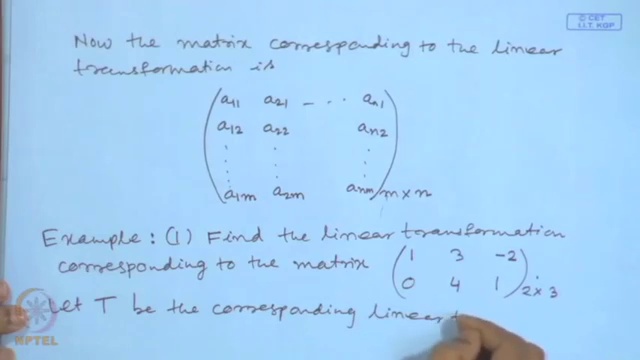 © CET
I.I.T. KGP
Now the matrix corresponding to the linear
transformation is
a11 a21 - . . . an1
a12 a22 an2
a1m a2m anm m×n
Example: (1) Find the linear transformation
corresponding to the matrix ( 1 3 -2
0 4 1 )2×3
Let T be the corresponding linear t
NPTEL